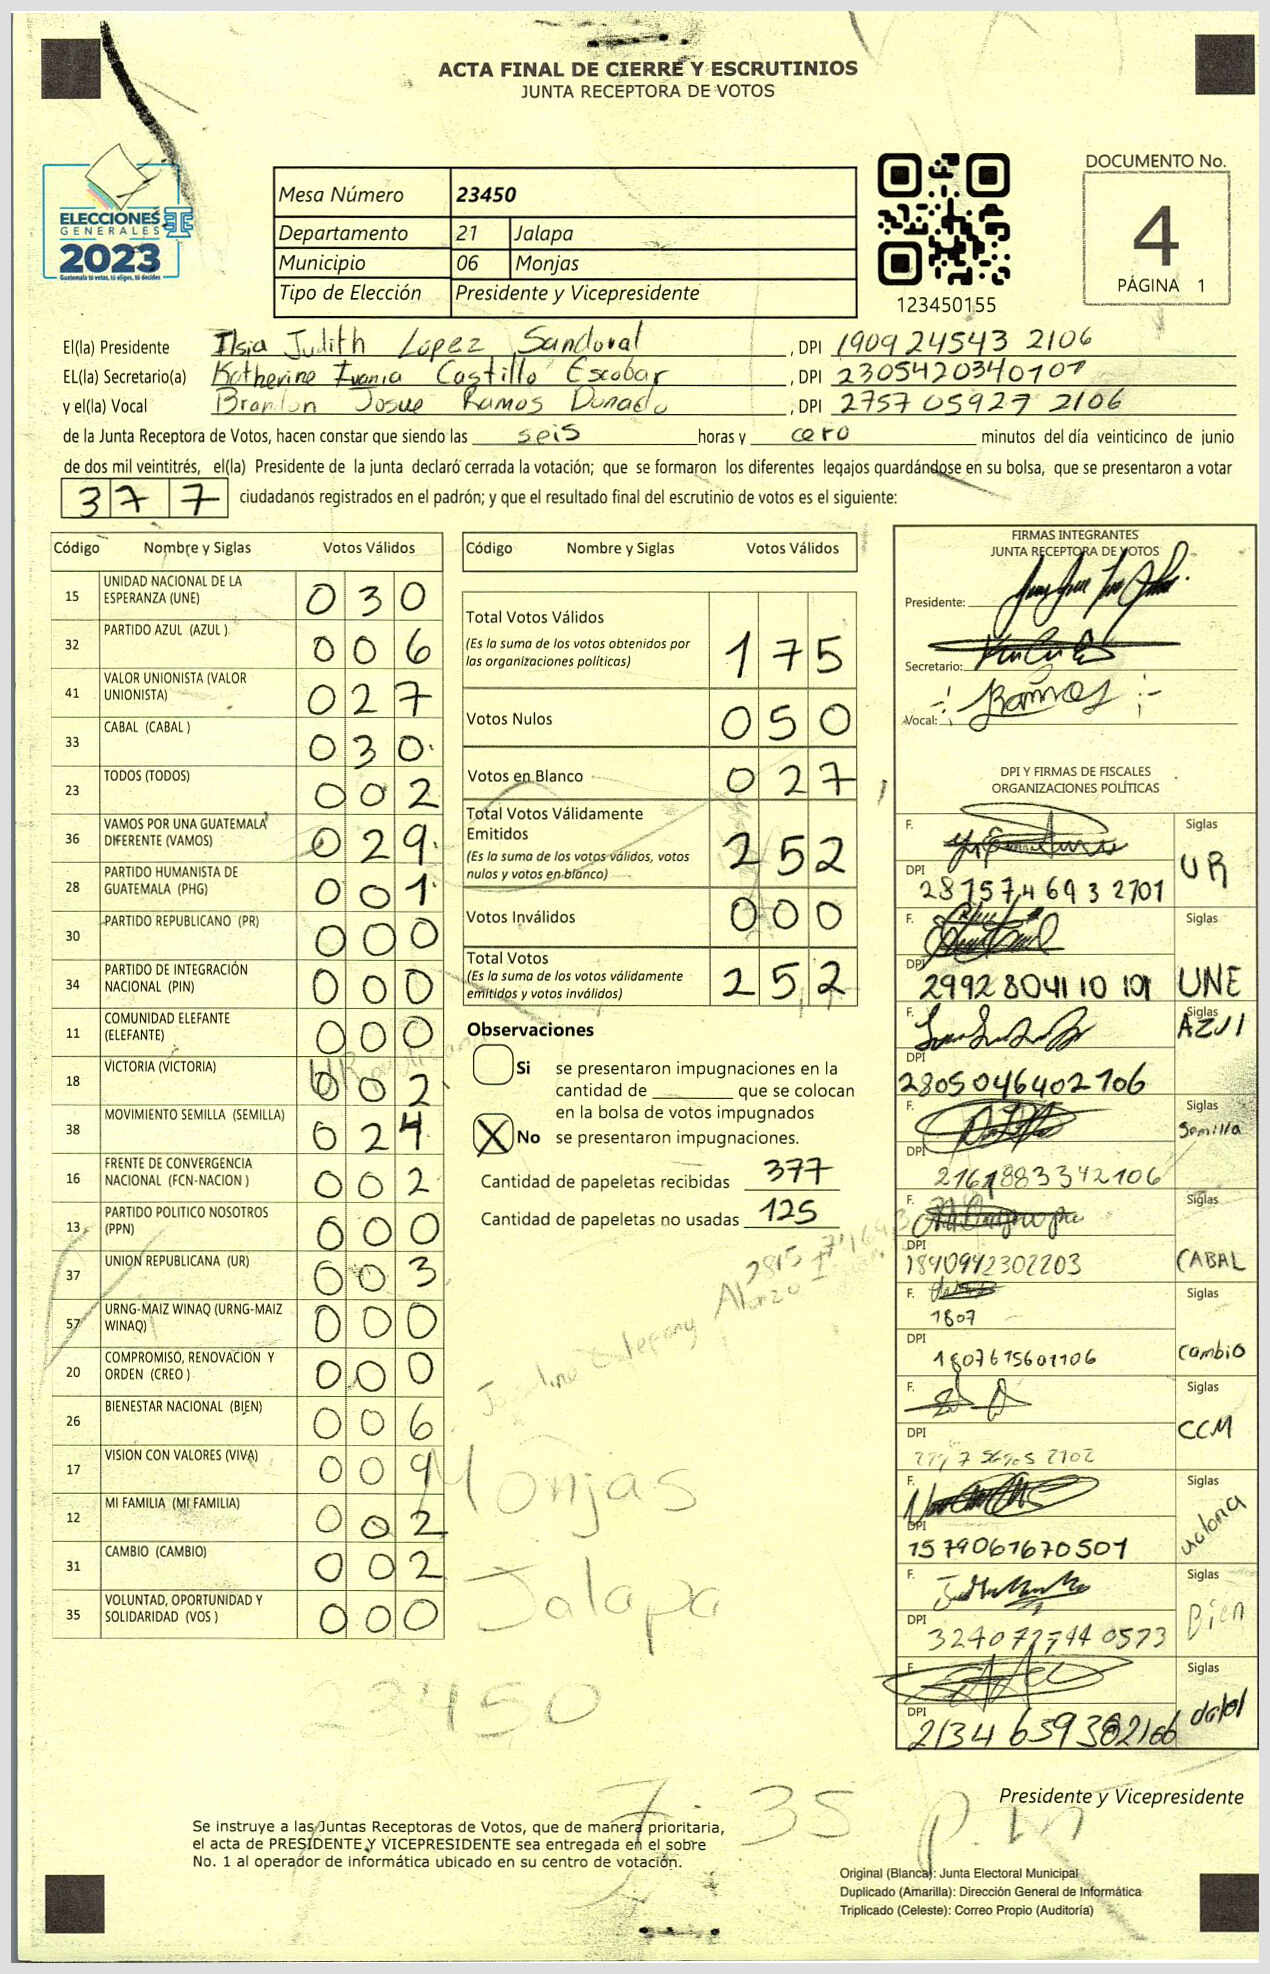 ACTA FINAL DE CIERRE Y ESCRUTINIOS
JUNTA RECEPTORA DE VOTOS
ELECCIONES
GENERALES
2023
Guatemala tú votas, tú eliges, tú decides
Mesa Número 23450
Departamento 21 Jalapa
Municipio 06 Monjas
Tipo de Elección Presidente y Vicepresidente
123450155
DOCUMENTO No.
4
PÁGINA 1
El(la) Presidente Ilsia Judith López Sandoval, DPI 1909 24543 2106
EL(la) Secretario(a) Katherine Ivania Castillo Escobar, DPI 2305420340101
y el(la) Vocal Brandon Josue Ramos Donado, DPI 2757 05927 2106
de la Junta Receptora de Votos, hacen constar que siendo las seis horas y cero minutos del día veinticinco de junio
de dos mil veintitrés, el(la) Presidente de la junta declaró cerrada la votación; que se formaron los diferentes legajos guardándose en su bolsa, que se presentaron a votar
377 ciudadanos registrados en el padrón; y que el resultado final del escrutinio de votos es el siguiente:
Código Nombre y Siglas Votos Válidos
15 UNIDAD NACIONAL DE LA ESPERANZA (UNE) 030
32 PARTIDO AZUL (AZUL ) 006
41 VALOR UNIONISTA (VALOR UNIONISTA) 027
33 CABAL (CABAL ) 030
23 TODOS (TODOS) 002
36 VAMOS POR UNA GUATEMALA DIFERENTE (VAMOS) 029
28 PARTIDO HUMANISTA DE GUATEMALA (PHG) 001
30 PARTIDO REPUBLICANO (PR) 000
34 PARTIDO DE INTEGRACIÓN NACIONAL (PIN) 000
11 COMUNIDAD ELEFANTE (ELEFANTE) 000
18 VICTORIA (VICTORIA) 002
38 MOVIMIENTO SEMILLA (SEMILLA) 024
16 FRENTE DE CONVERGENCIA NACIONAL (FCN-NACION ) 002
13 PARTIDO POLITICO NOSOTROS (PPN) 000
37 UNION REPUBLICANA (UR) 003
57 URNG-MAIZ WINAQ (URNG-MAIZ WINAQ) 000
20 COMPROMISO, RENOVACION Y ORDEN (CREO ) 000
26 BIENESTAR NACIONAL (BIEN) 006
17 VISION CON VALORES (VIVA) 009
12 MI FAMILIA (MI FAMILIA) 002
31 CAMBIO (CAMBIO) 002
35 VOLUNTAD, OPORTUNIDAD Y SOLIDARIDAD (VOS ) 000
Código Nombre y Siglas Votos Válidos
Total Votos Válidos 175
(Es la suma de los votos obtenidos por
las organizaciones políticas)
Votos Nulos 050
Votos en Blanco 027
Total Votos Válidamente
Emitidos 252
(Es la suma de los votos válidos, votos
nulos y votos en blanco)
Votos Inválidos 000
Total Votos 252
(Es la suma de los votos válidamente
emitidos y votos inválidos)
Observaciones
Si se presentaron impugnaciones en la
cantidad de que se colocan
en la bolsa de votos impugnados
X No se presentaron impugnaciones.
Cantidad de papeletas recibidas 377
Cantidad de papeletas no usadas 125
Monjas
Jalapa
23450
7:35 p.m
FIRMAS INTEGRANTES
JUNTA RECEPTORA DE VOTOS
Presidente:
Secretario:
Vocal: Ramos
DPI Y FIRMAS DE FISCALES
ORGANIZACIONES POLÍTICAS
F. Siglas UR
DPI 281574693 2701
F. Siglas UNE
DPI 2992 80411 0 101
F. Siglas AZUl
DPI 2805046402106
F. Siglas Semilla
DPI 2161883342106
F. Siglas CABAL
DPI 1840942302203
F. Siglas cambio
1807
DPI 1807615601106
F. Siglas CCM
DPI
F. Siglas
DPI 1579061670501
F. Siglas Bien
DPI
F. Siglas
DPI
Presidente y Vicepresidente
Se instruye a las Juntas Receptoras de Votos, que de manera prioritaria,
el acta de PRESIDENTE Y VICEPRESIDENTE sea entregada en el sobre
No. 1 al operador de informática ubicado en su centro de votación.
Original (Blanca): Junta Electoral Municipal
Duplicado (Amarilla): Dirección General de Informática
Triplicado (Celeste): Correo Propio (Auditoría)